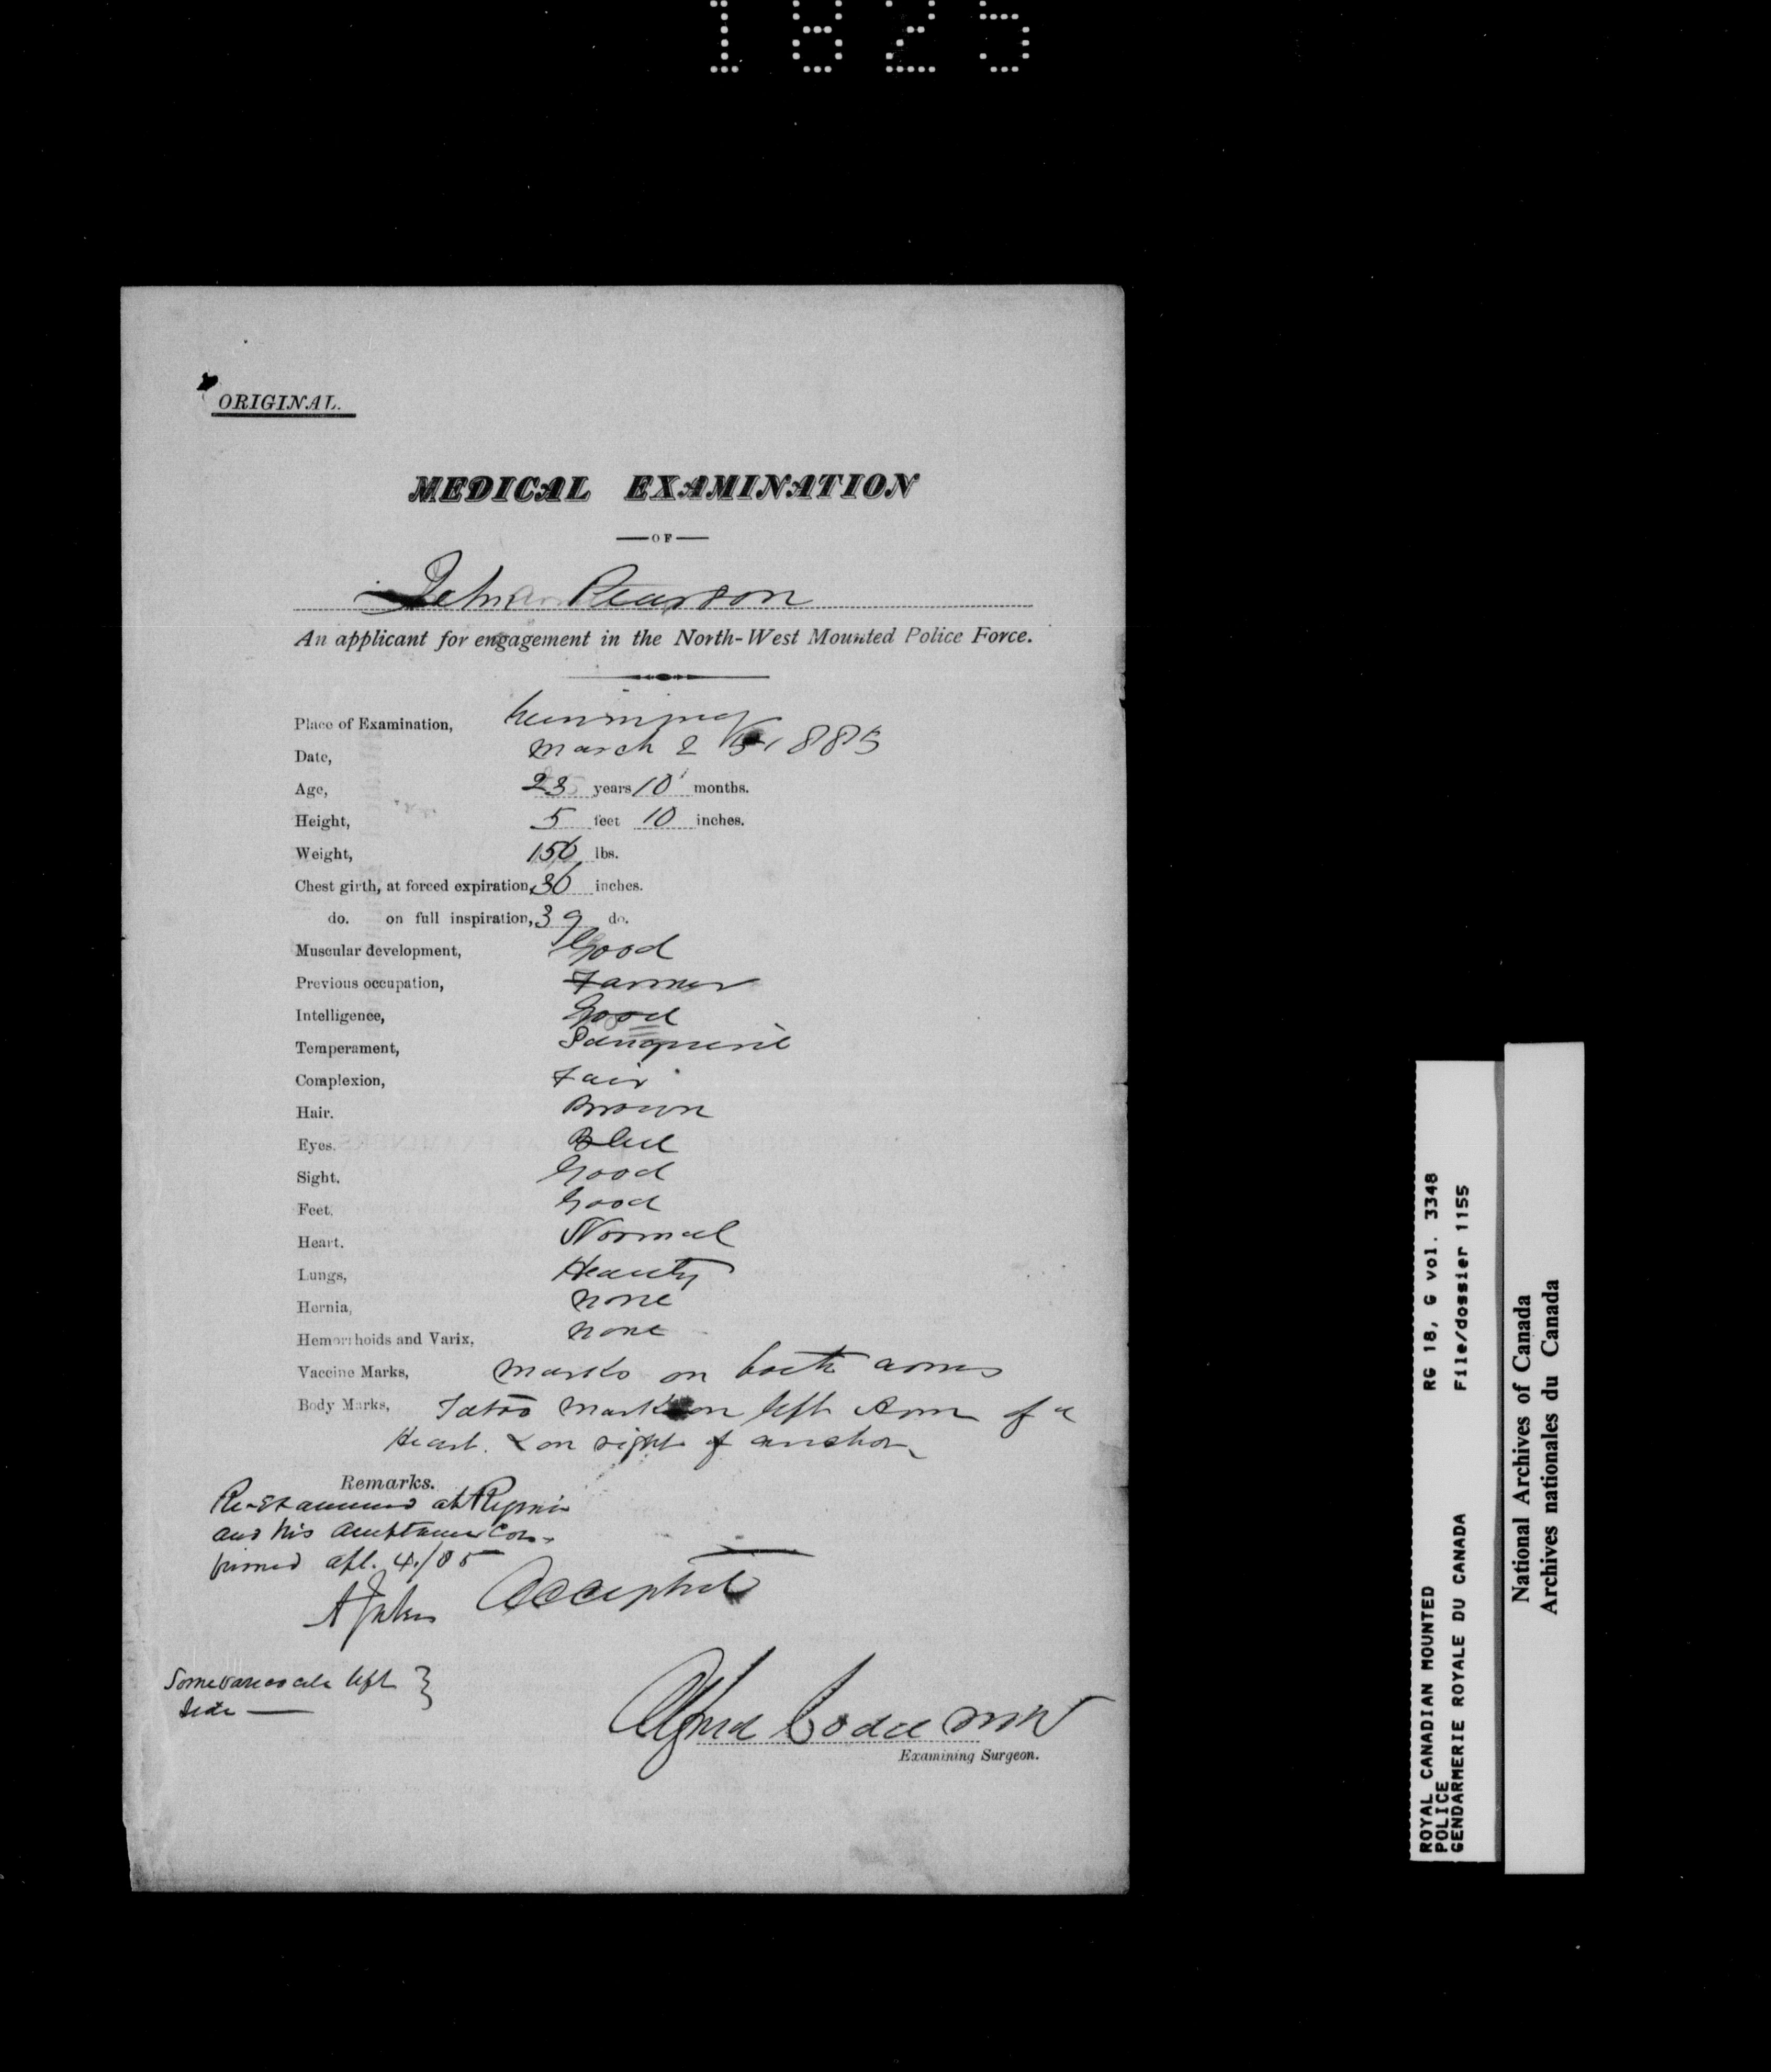 1825
ORIGINAL.
MEDICAL EXAMINATION
OF
John Pearson
An applicant for engagement in the North-West Mounted Police Force.
Place of Examination, Winnipeg
Date, March 25 1885
Age, 23 years 10 months.
Height, 5 feet 10 inches.
Weight, 156 lbs.
Chest girth, at forced expiration, 36 inches.
do. on full inspiration, 39 do.
Muscular development, Good
Previous occupation, Farmer
Intelligence, Good
Temperament, Sanguine
Complexion, Fair
Hair. Brown
Eyes. Blue
Sight. Good
Feet. Good
Heart. Normal
Lungs, Healthy
Hernia, none
Hemorrhoids and Varix, none
Vaccine Marks, Marks on both arms
Body Marks, Tatoo Mark on left Arm of a
Heart. & on right of anchor
Remarks.
Re-examined at Regina
and his acceptance con-
firmed apl. 4/85
A Jukes
Accepted
Some varicocele left
side
Alfred Codd MD
Examining Surgeon.
ROYAL CANADIAN MOUNTED RG 18, G vol. 3348
POLICE
GENDARMERIE ROYALE DU CANADA File/dossier 1155
National Archives of Canada
Archives nationales du Canada